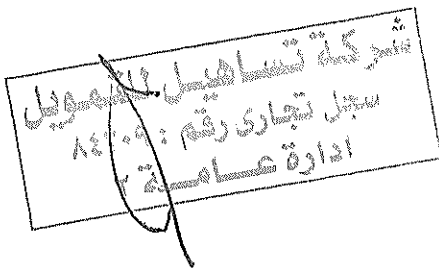 شركة تساهيل للتمويل
سجل تجارى رقم :
ادارة عــامــة ٢